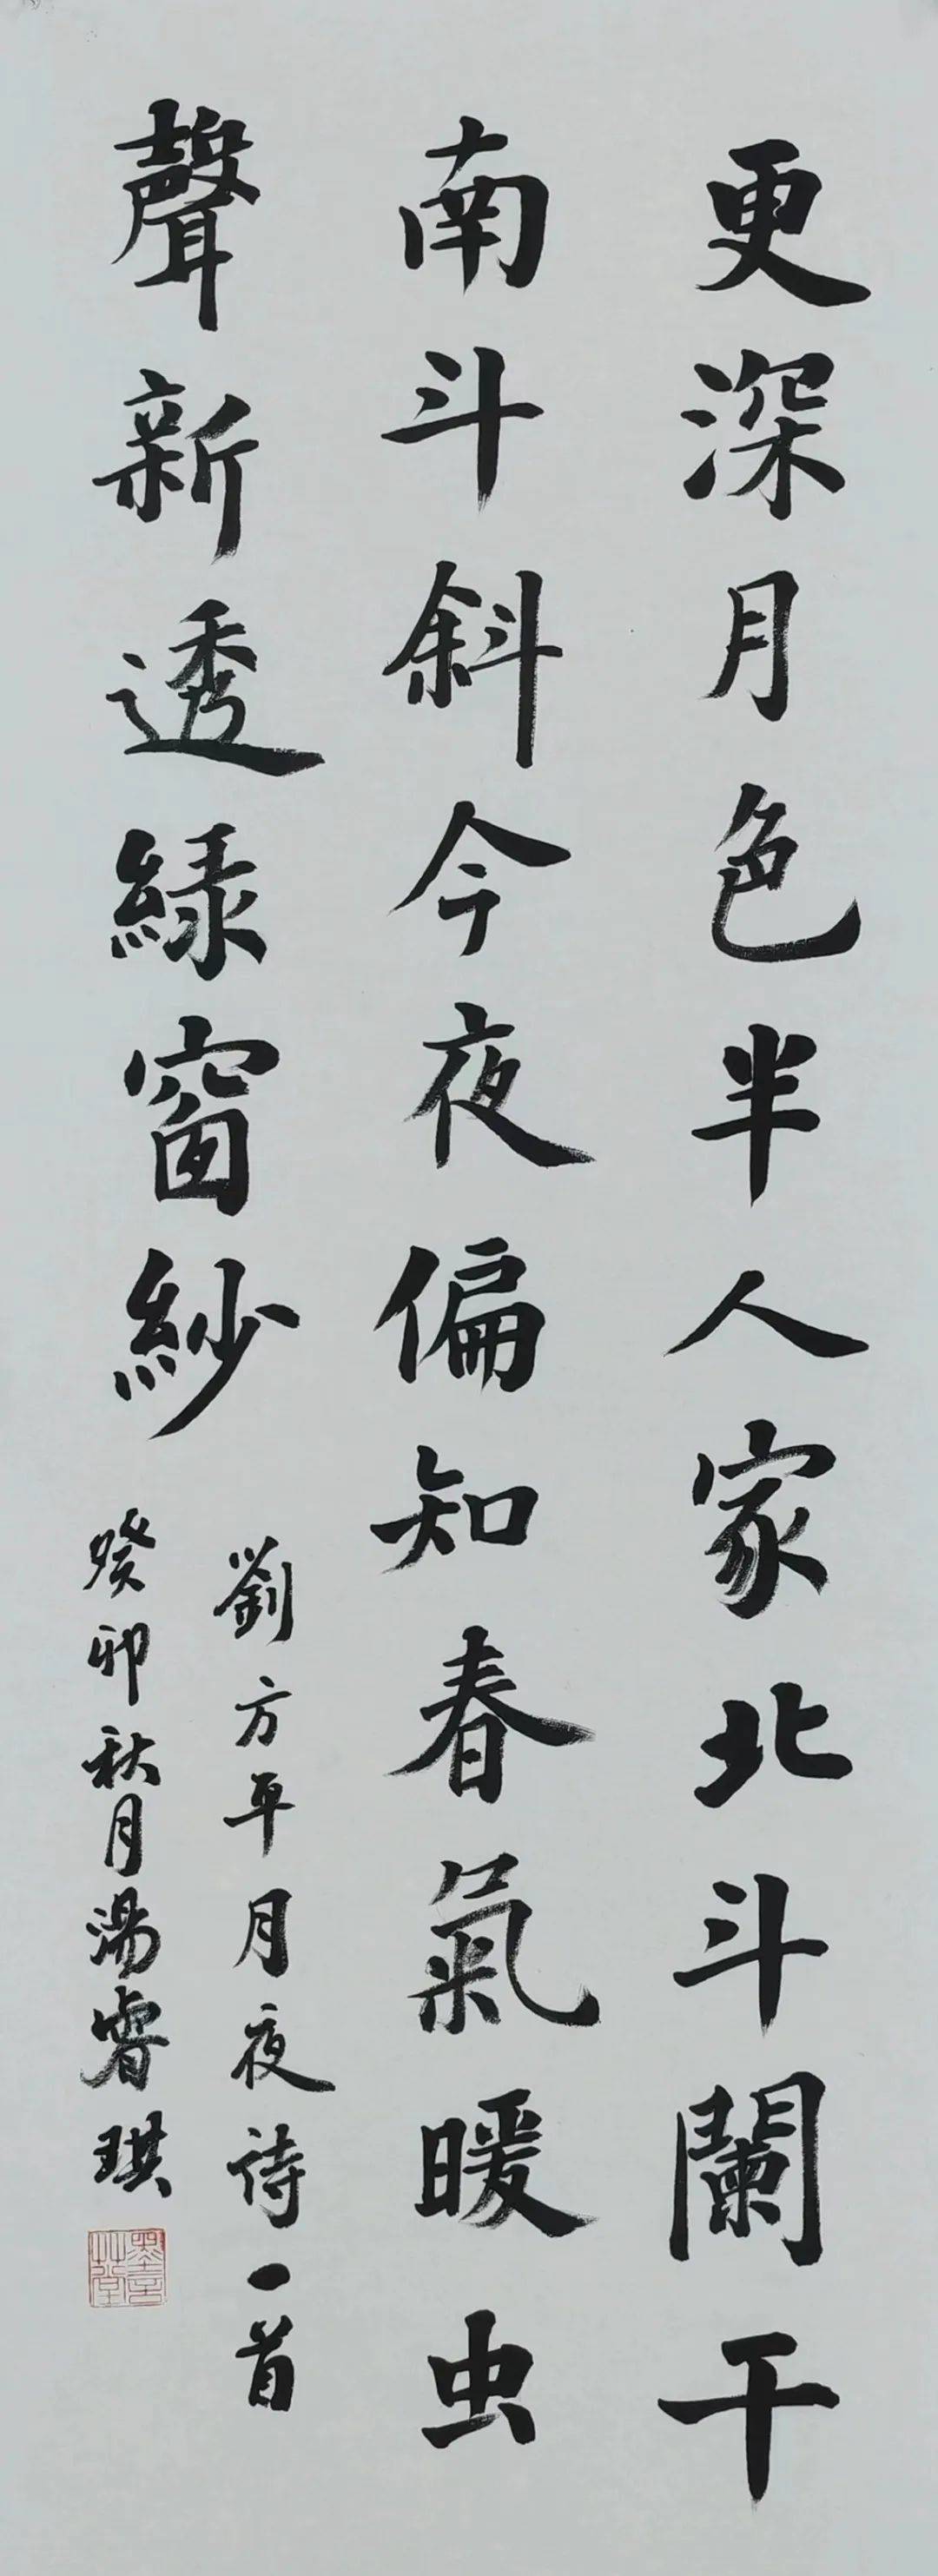 更深月色半人家北斗闌干
南斗斜今夜偏知春氣暖虫
聲新透綠窗紗
劉方平月夜詩一首
癸卯秋月湯睿琪